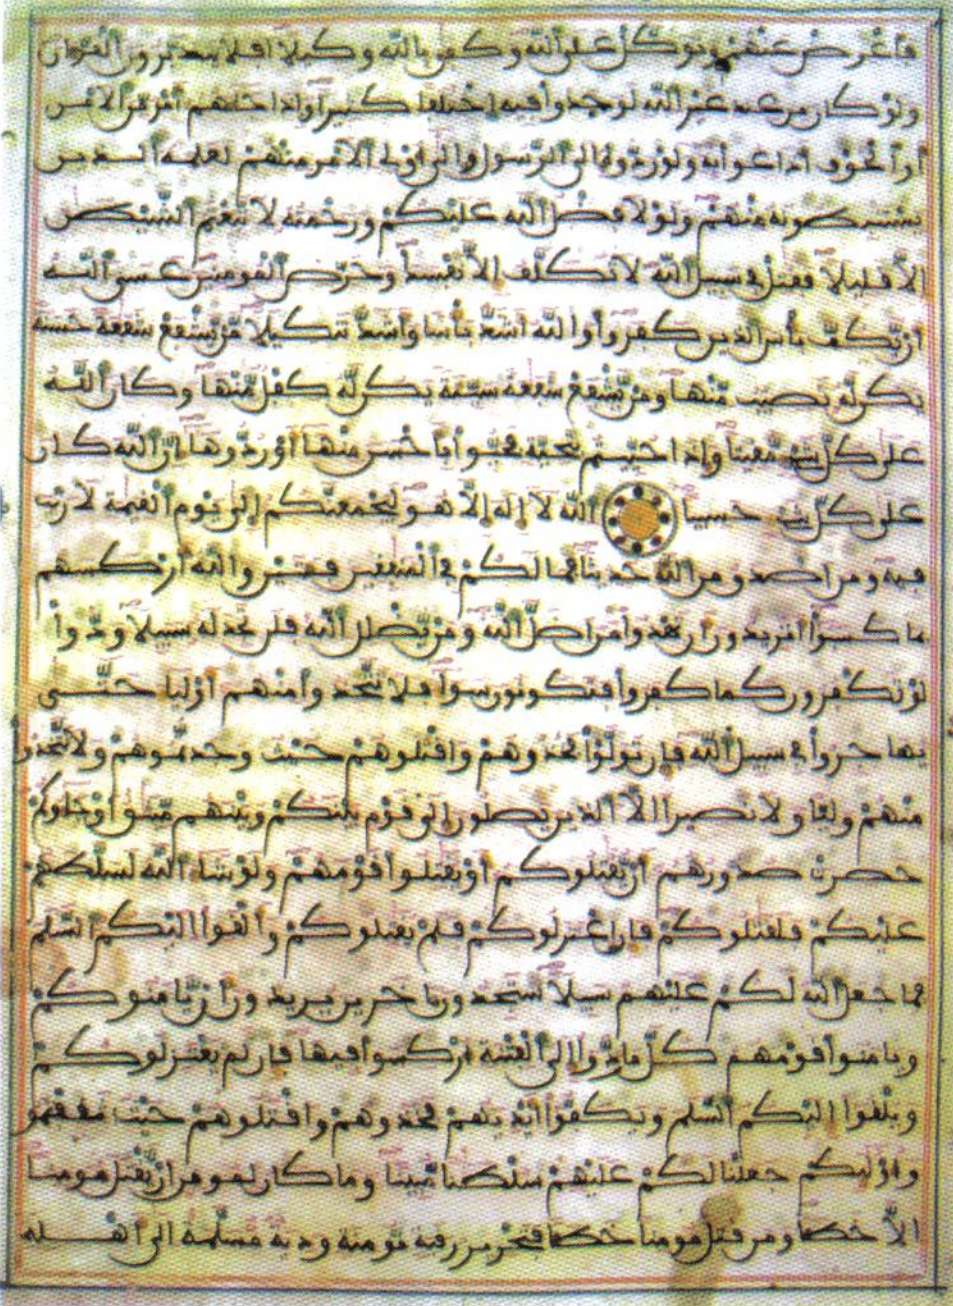 فأعرض عنهم وتوكل على الله وكفى بالله وكيلا افلا يتدبرون القرءان
ولو كان من عند غير الله لوجدوا فيه اختلفا كثيرا وإذا جاءهم أمر من الامن
أو الخوف أذاعوا به ولو ردوه إلى الرسول وإلى أولى الامر منهم لعلمه الذين
يستنبطونه منهم ولولا فضل الله عليكم ورحمته لاتبعتم الشيطن
إلا قليلا فقتل في سبيل الله لا تكلف إلا نفسك وحرض المومنين عسى الله
أن يكف بأس الذين كفروا والله أشد بأسا وأشد تنكيلا من يشفع شفعة حسنة
يكن له نصيب منها ومن يشفع شفعة سيئة يكن له كفل منها وكان الله
على كل شيء مقيتا وإذا حييتم بتحية فحيوا بأحسن منها أو ردوها إن الله كان
على كل شيء حسيبا الله لا إله إلا هو ليجمعنكم إلى يوم القيمة لا ريب
فيه ومن اصدق من الله حديثا فما لكم في المنفقين فئتين والله أركسهم
بما كسبوا أتريدون أن تهدوا من اضل الله ومن يضلل الله فلن تجد له سبيلا ودوا
لو تكفرون كما كفروا فتكونون سواء فلا تتخذوا منهم أولياء حتى
يهاجروا في سبيل الله فإن تولوا فخذوهم واقتلوهم حيث وجدتموهم ولا تتخذوا
منهم وليا ولا نصيرا الا الذين يصلون إلى قوم بينكم وبينهم ميثق أو جاءوكم
حصرت صدورهم أن يقتلوكم أو يقتلوا قومهم ولو شاء الله لسلطهم
عليكم فلقتلوكم فإن اعتزلوكم فلم يقتلوكم وألقوا اليكم السلم
فما جعل الله لكم عليهم سبيلا ستجدون ءاخرين يريدون أن يامنوكم
ويامنوا قومهم كل ما ردوا إلى الفتنة أركسوا فيها فإن لم يعتزلوكم
ويلقوا اليكم السلم ويكفوا أيديهم فخذوهم واقتلوهم حيث ثقفتموهم
وأولئكم جعلنا لكم عليهم سلطنا مبينا وما كان لمومن ان يقتل مومنا
الا خطئا ومن قتل مومنا خطئا فتحرير رقبة مومنة ودية مسلمة الى أهله